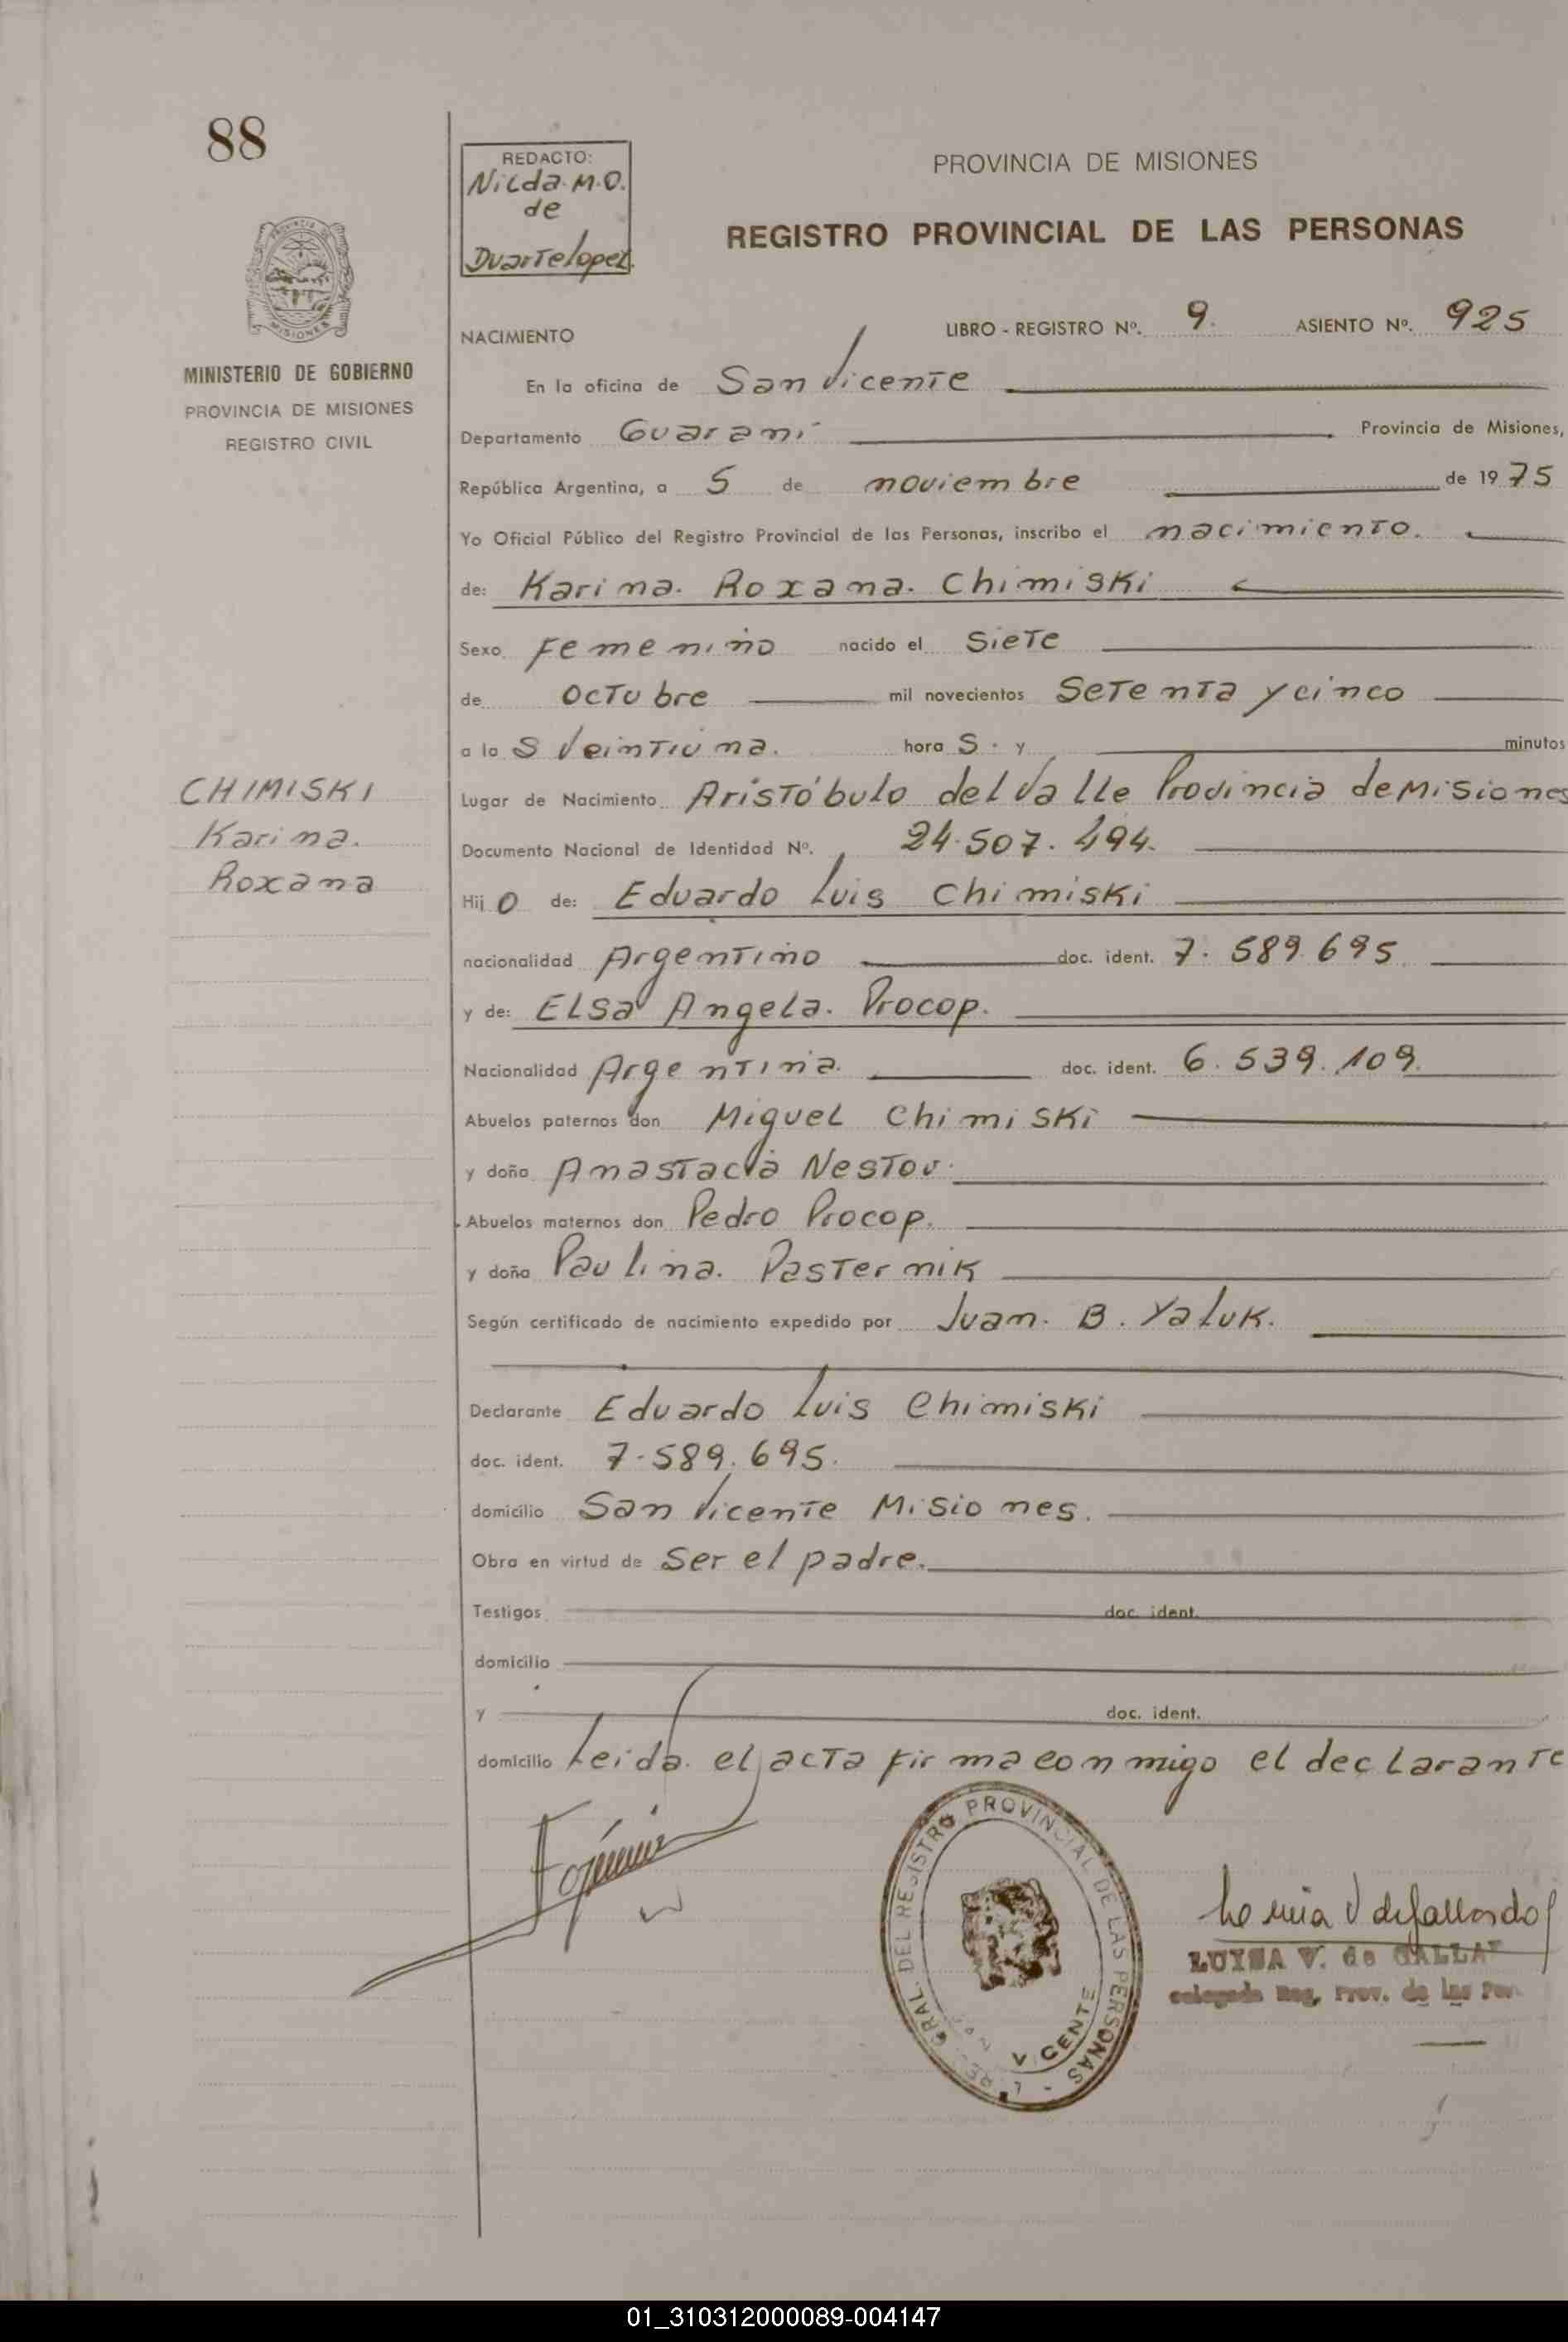 88
REDACTO:
Nilda. M.O.
de
Duarte lopez.
PROVINCIA DE MISIONES
REGISTRO PROVINCIAL DE LAS PERSONAS
MINISTERIO DE GOBIERNO
PROVINCIA DE MISIONES
REGISTRO CIVIL
NACIMIENTO LIBRO - REGISTRO Nº. 9. ASIENTO Nº. 925
En la oficina de San Vicente
Departamento Guaraní Provincia de Misiones,
República Argentina, a 5 de noviembre de 1975
Yo Oficial Público del Registro Provincial de las Personas, inscribo el nacimiento.
de: Karina. Roxana. Chimiski
Sexo Femenino nacido el Siete
de Octubre mil novecientos Setenta y cinco
a las Veintiuna. horas. y minutos
CHIMISKI
Karina.
Roxana
Lugar de Nacimiento Aristóbulo del Valle Provincia de Misiones
Documento Nacional de Identidad Nº. 24.507.494.
Hijo de: Eduardo Luis Chimiski
nacionalidad Argentino doc. ident. 7.589.695
y de: Elsa Angela. Procop.
Nacionalidad Argentina. doc. ident. 6.539.109.
Abuelos paternos don Miguel Chimiski
y doña Anastacia Nestou.
Abuelos maternos don Pedro Procop.
y doña Paulina. Pasternik
Según certificado de nacimiento expedido por Juan. B. Yaluk.
Declarante Eduardo Luis Chimiski
doc. ident. 7.589.695.
domicilio San Vicente Misiones.
Obra en virtud de Ser el padre.
Testigos doc. ident.
domicilio
y doc. ident.
domicilio Leida. el acta firma conmigo el declarante
GRAL. DEL REGISTRO PROVINCIAL DE LAS PERSONAS
VICENTE
LUISA V. de
Reg. Prov. de las
01_310312000089-004147